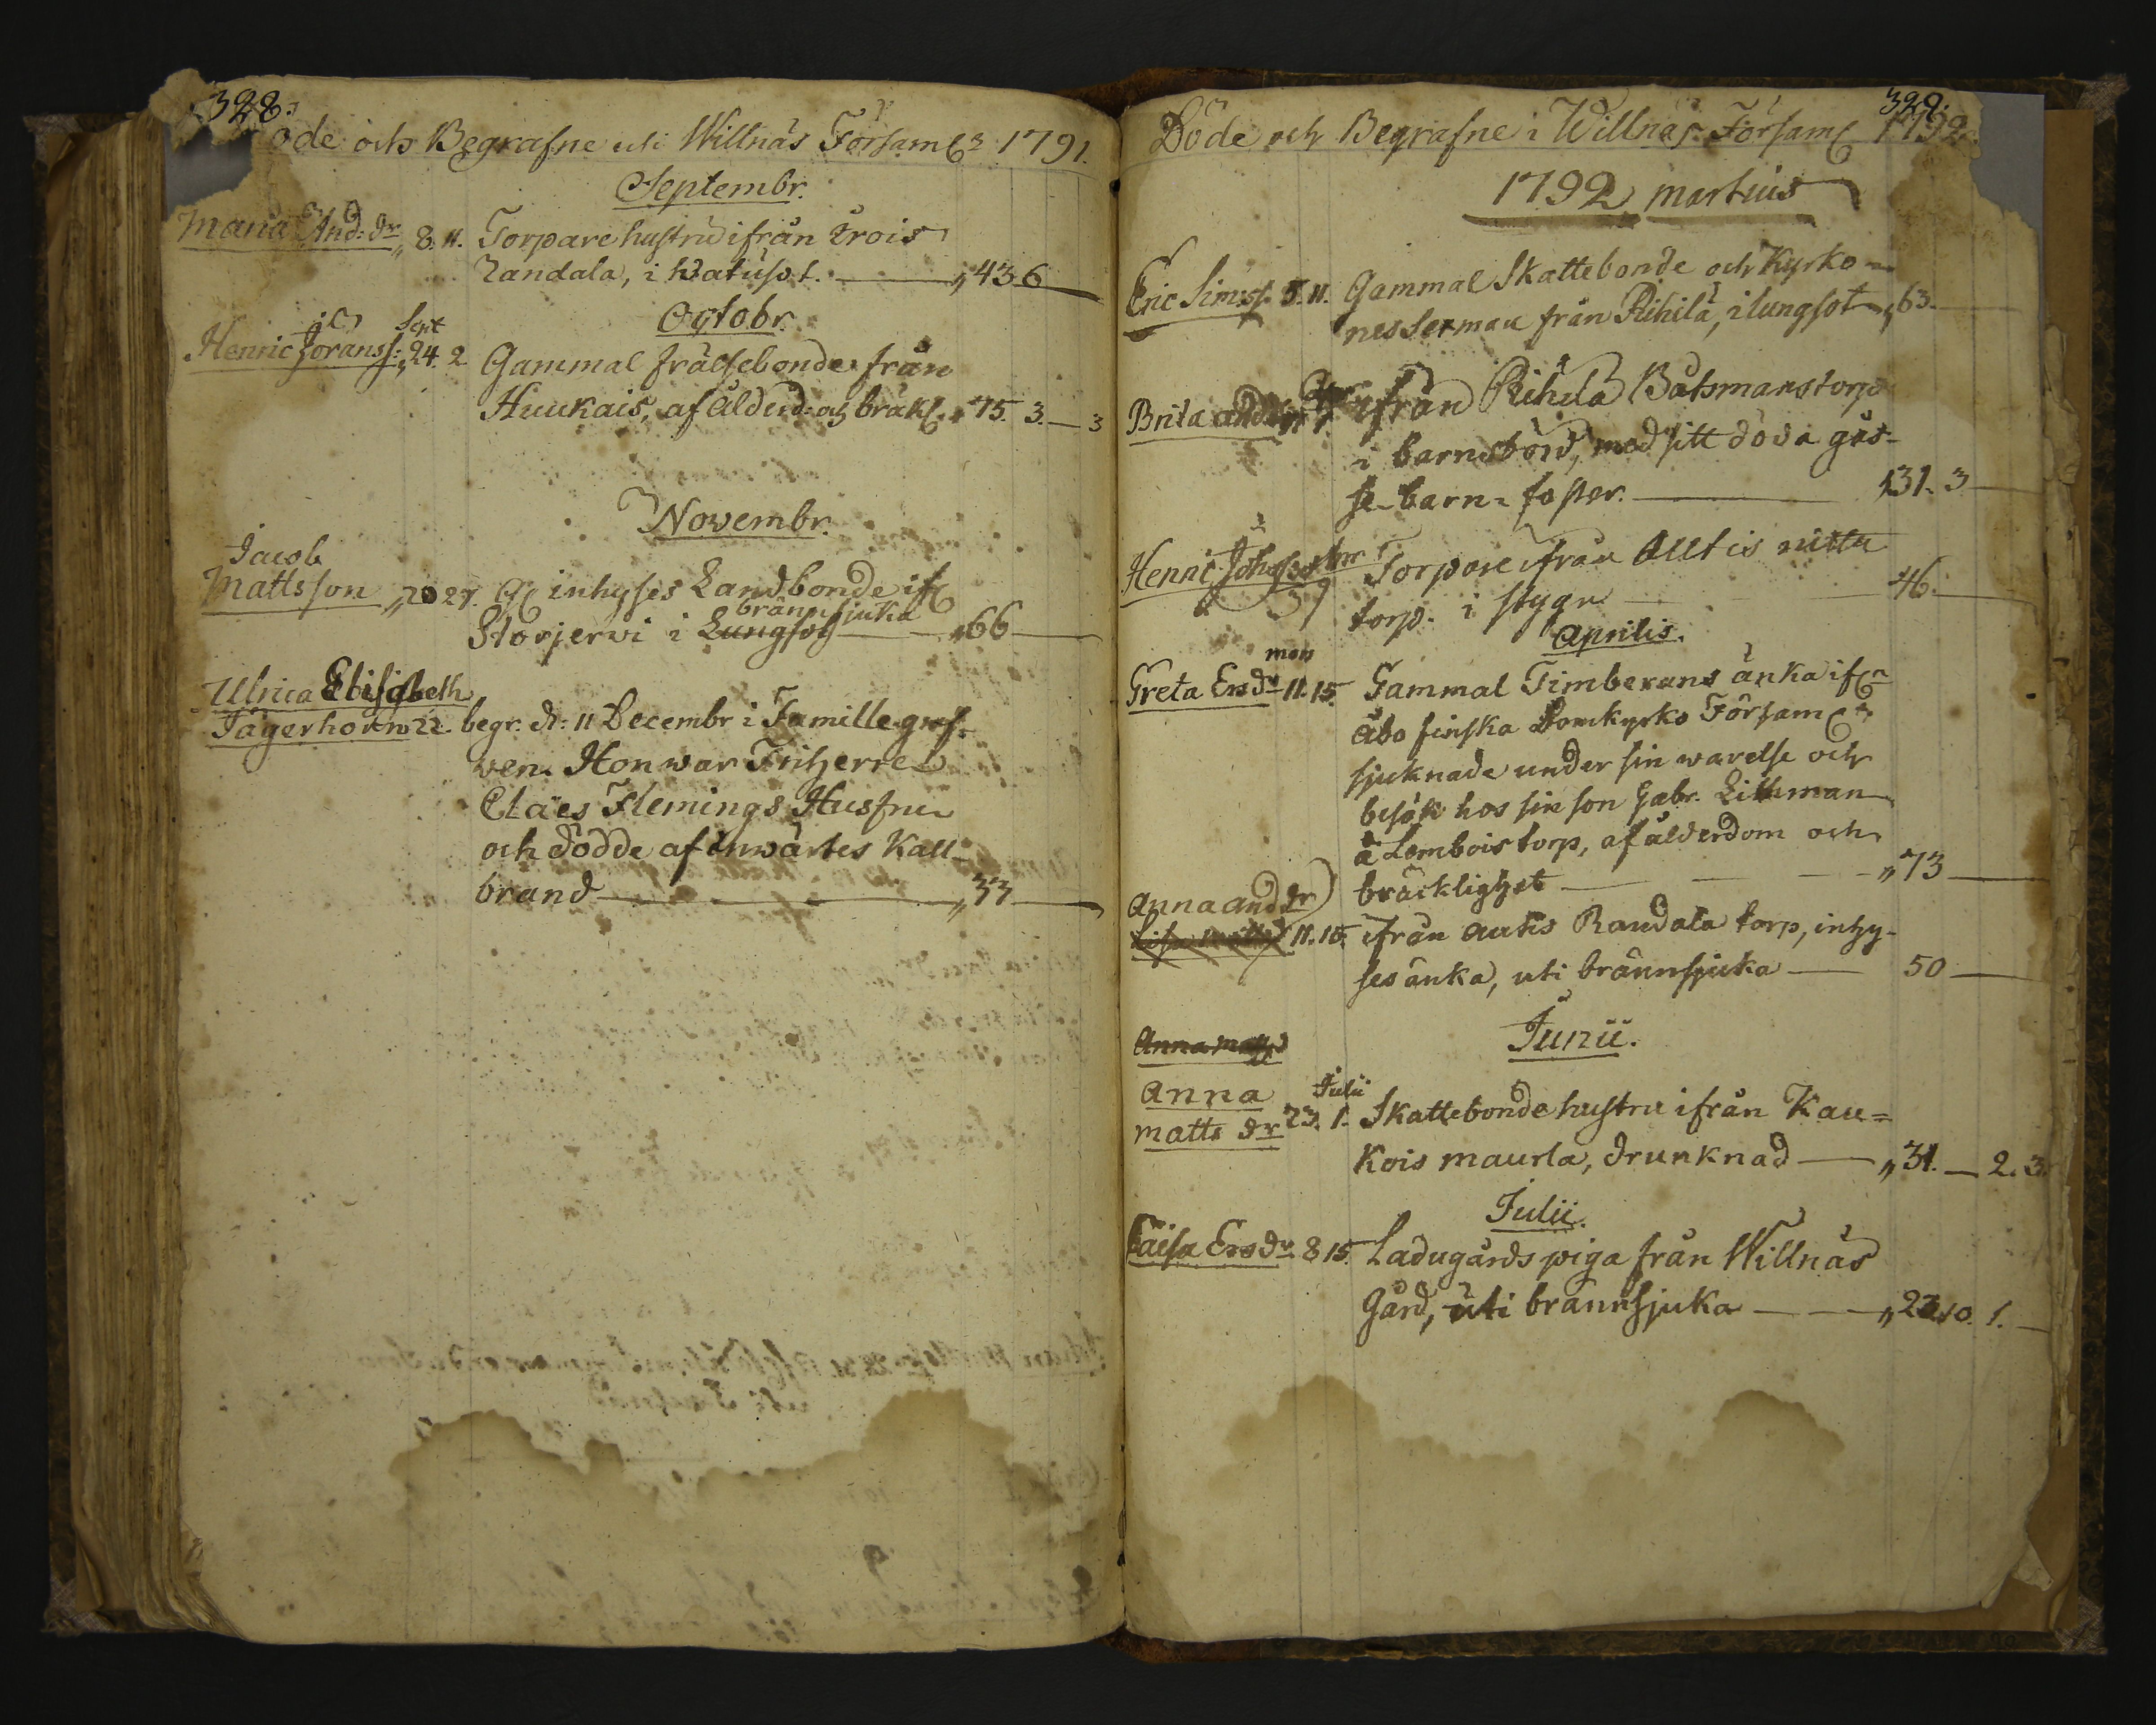 328.
öde och Begrafne uti Willnäs Församl: 1791.
Septembr.
Maria And: dr „ 8. 11. Torpare hustru ifrån
Randala, i Watusot. „ 43 6
Octobr.
Sept
Henric Jöranss: „ 24. 2 Gammal frälsebonde från
Huukais, af ålderd: och bräkl. „ 75. 3. 3
Novembr.
Jacob
Mattsson „ 20 27. Gl inhyses Landbonde ifr
brännsjuka
Storjerwi i Lungsot „ 66
Ulrica Elisabeth
Jägerhorn 22. begr. d: 11 Decembr i Famille graf-
ven. Hon war Friherre
Claes Flemings Husfru
och dödde af inwärtes Kall-
brand „ 33
329.
Döde och Begrafne i Willnäs Församl 1792
1792 Martius
Eric Simss. 5. 11. Gammal Skattebonde och Kyrko-
nes Sexman från Rihilä, i lungsot „ 63.
Brita And: dr ifrån Rihila Båtsmanstorp
i barnsbörd, med sitt döda gås-
se-barn-foster. „ 31. 3
Henric Johss. Torpare ifrån Alltis nittu
torp. i stygn 46.
Aprilis.
mars
Greta Ersdr 11. 15. Gammal Timbermans änka ifrn
Åbo finska Domkyrko Församl:
sjuknade under sin warelse och
besök hos sin son Gabr. Lithman
å Lembois torp, af ålderdom och
bräcklighet „ 73
Anna And dr
11. 15. ifrån Autis Randala torp, inhy-
ses änka, uti brännsjuka 50
Junii.
Anna
Anna Julii
Matts dr 23. 1. Skattebonde hustru ifrån Kau=
kois maurla, drunknad „ 31. 2. 3.
Julii.
Caisa Ersdr. 8 15. Ladugårds piga från Willnäs
Gård, uti brännsjuka „ 23. 10. 1.